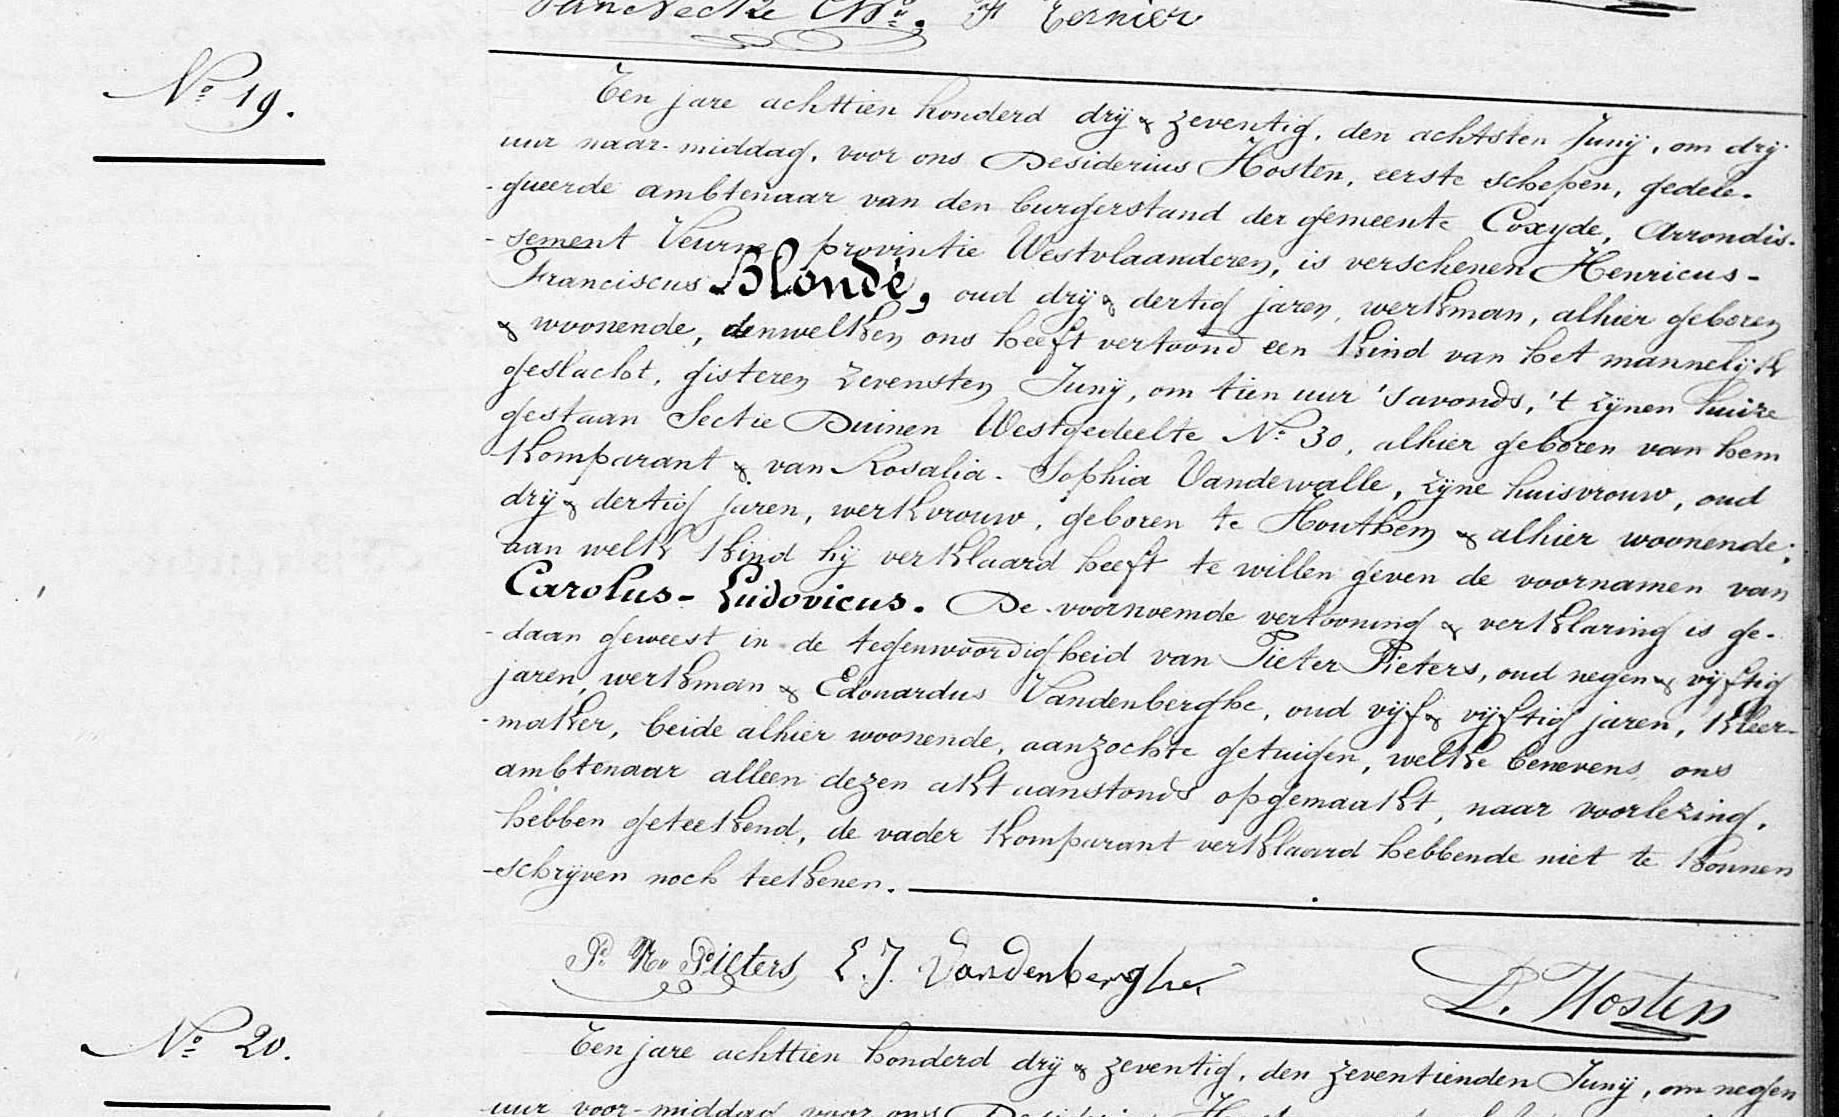 Vandecke F Ternier
No 19.
Ten jare achttien honderd drij & zeventig, den achtsten Junij, om drij
uur naar-middag, voor ons Desiderius Hosten, eerste schepen, gedele-
-gueerde ambtenaar van den burgerstand der gemeente Coxyde, Arrondis-
-sement Veurne provintie Westvlaanderen, is verschenen Henricus-
Franciscus Blondé, oud drij & dertig jaren, werkman, alhier geboren
& woonende, denwelken ons heeft vertoond een kind van het mannelijk
geslacht, gisteren zevensten Junij, om tien uur 's avonds, 't zijnen huize
gestaan Sectie Duinen Westgedeelte No 30, alhier geboren van hem
komparant & van Rosalia-Sophia Vandewalle, zijne huisvrouw, oud
drij & dertig jaren, werkvrouw, geboren te Houthem & alhier woonende;
aan welk kind hij verklaard heeft te willen geven de voornamen van
Carolus-Ludovicus. De voornoemde vertooning & verklaring is ge-
-daan geweest in de tegenwoordigheid van Pieter Pieters, oud negen & vijftig
jaren, werkman & Edouardus Vandenberghe, oud vijf & vijftig jaren, kleer-
-maker, beide alhier woonende, aanzochte getuigen, welke benevens ons
ambtenaar alleen dezen akt aanstonds opgemaakt, naar voorlezing,
hebben geteekend, de vader komparant verklaard hebbende niet te konnen
-schrijven noch teekenen.
Pieters E. J. Vandenberghe D. Hosten
No 20.
Ten jare achttien honderd drij & zeventig, den zeventienden Junij, om negen
uur voor-middag voor ons